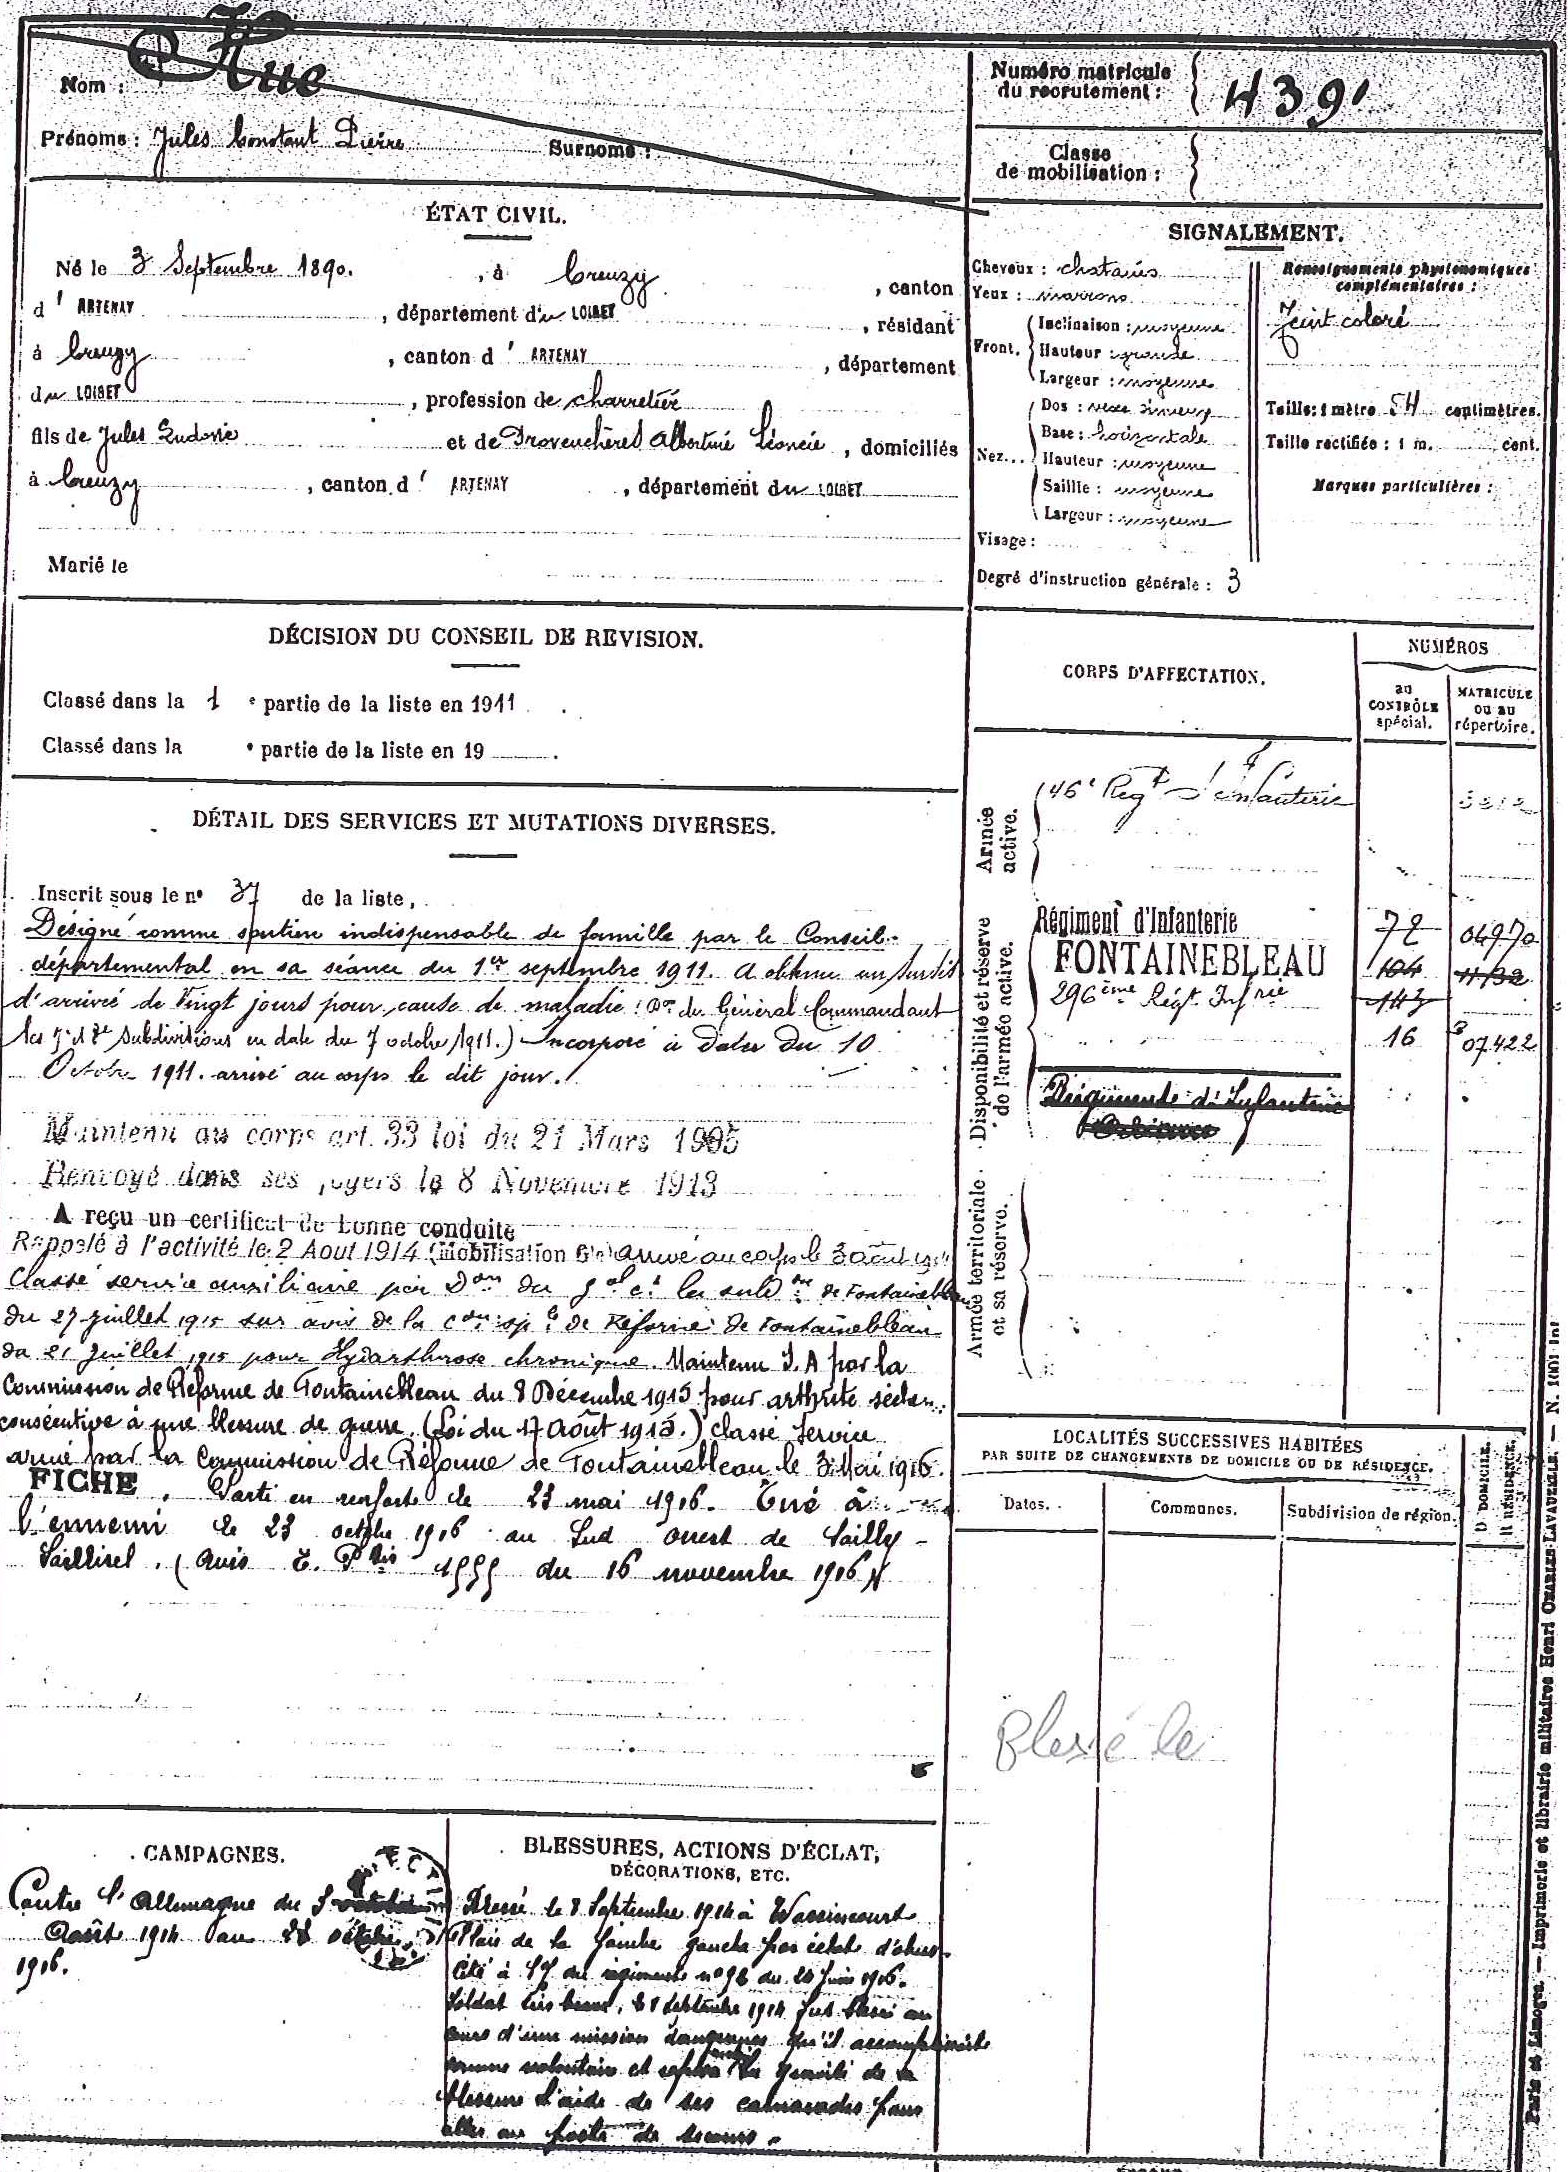 Nom : Hue
Prénoms : Jules Constant Pierre Surnoms :
Numéro matricule
du recrutement : 439
Classe
de mobilisation :
ÉTAT CIVIL.
Né le 3 Septembre 1890. , à Creuzy , canton
d' ARTENAY , département du LOIRET , résidant
à Creuzy , canton d' ARTENAY , département
du LOIRET , profession de charretier
fils de Jules Ludovic et de Provenchères Albertine Léoncie , domiciliés
à Creuzy , canton d' ARTENAY , département du LOIRET
Marié le
SIGNALEMENT.
Cheveux : chatains
Yeux : marrons
Front. Inclinaison : moyenne
Hauteur : grande
Largeur : moyenne
Nez... Dos :
Base : horizontale
Hauteur : moyenne
Saillie : moyenne
Largeur : moyenne
Visage :
Degré d'instruction générale : 3
Renseignements physionomiques
complémentaires :
Teint coloré
Taille : 1 mètre 54 centimètres.
Taille rectifiée : 1 m. cent.
Marques particulières :
DÉCISION DU CONSEIL DE REVISION.
Classé dans la 1 e partie de la liste en 1911 .
Classé dans la e partie de la liste en 19 .
DÉTAIL DES SERVICES ET MUTATIONS DIVERSES.
Inscrit sous le no 37 de la liste,
Désigné comme soutien indispensable de famille par le Conseil
départemental en sa séance du 1er septembre 1911. A obtenu un sursis
d'arrivée de vingt jours pour cause de maladie (Don du Général Commandant
les subdivisions en date du 7 octobre 1911.) Incorporé à dater du 10
Octobre 1911. arrivé au corps le dit jour.
Maintenu au corps art. 33 loi du 21 Mars 1905
Renvoyé dans ses foyers le 8 Novembre 1913
A reçu un certificat de bonne conduite
Rappelé à l'activité le 2 Aout 1914 (Mobilisation Gle) arrivé au corps le 3 août 1914
Classé service auxiliaire par Don du Gal Ct les subdons de Fontainebleau
du 27 juillet 1915 sur avis de la Con sple de Réforme de Fontainebleau
du 21 juillet 1915 pour Hydarthrose chronique. Maintenu S.A par la
Commission de Réforme de Fontainebleau du 8 Décembre 1915 pour arthrite
consécutive à une blessure de guerre. (Loi du 17 Août 1915.) Classé Service
armé par la Commission de Réforme de Fontainebleau le 3 Mai 1916.
FICHE . Parti en renforts le 23 mai 1916. Tué à
l'ennemi le 23 octobre 1916 au Sud ouest de Sailly-
Saillisel. (Avis du 16 novembre 1916)
CORPS D'AFFECTATION.
NUMÉROS
au
CONTRÔLE
spécial.
MATRICULE
ou au
répertoire.
Armée
active.
46e Regt d'Infanterie
Disponibilité et réserve
de l'armée active.
Régiment d'Infanterie 72 04970
FONTAINEBLEAU 104 1132
296ème Régt Infrie 143
16 07422
Régiment d'Infanterie
Armée territoriale
et sa réserve.
LOCALITÉS SUCCESSIVES HABITÉES
PAR SUITE DE CHANGEMENTS DE DOMICILE OU DE RÉSIDENCE.
Dates. Communes. Subdivision de région. D DOMICILE. R RÉSIDENCE.
Blessé le
CAMPAGNES.
Contre l'Allemagne du 3
Août 1914 au 23 octobre
1916.
BLESSURES, ACTIONS D'ÉCLAT,
DÉCORATIONS, ETC.
Blessé le 8 Septembre 1914 à Vassincourt
Plaie de la jambe gauche par éclat d'obus.
Cité à l'O du régiment no 98 du 20 Juin 1916.
Soldat très brave, le 8 septembre 1914 fut blessé au
cours d'une mission dangereuse qu'il accomplissait
comme volontaire et refusa malgré la gravité de sa
blessure l'aide de ses camarades pour
aller au poste de secours.
Paris et Limoges. — Imprimerie et librairie militaires Henri CHARLES-LAVAUZELLE. —